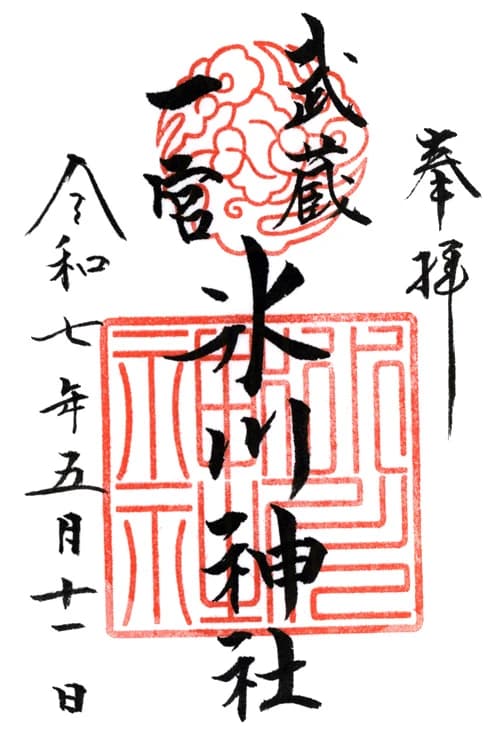 奉拝
武蔵
一宮
氷川神社
令和七年五月十一日
氷川神社